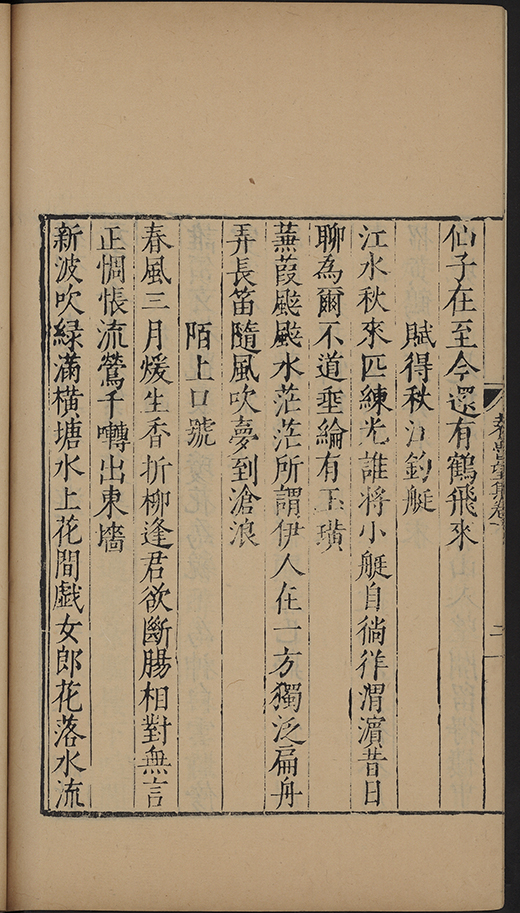 仙子在至今還有鶴飛來
賦得秋江釣艇
江水秋來匹練光誰將小艇自徜徉渭濱昔日
聊為爾不道垂綸有玉璜
蒹葭颼颼水茫茫所謂伊人在一方獨泛扁舟
弄長笛隨風吹夢到滄浪
陌上口號
春風三月煖生香折柳逢君欲斷腸相對無言
正惆悵流鶯千囀出東墻
新波吹緑滿橫塘水上花間戯女郎花落水流
二